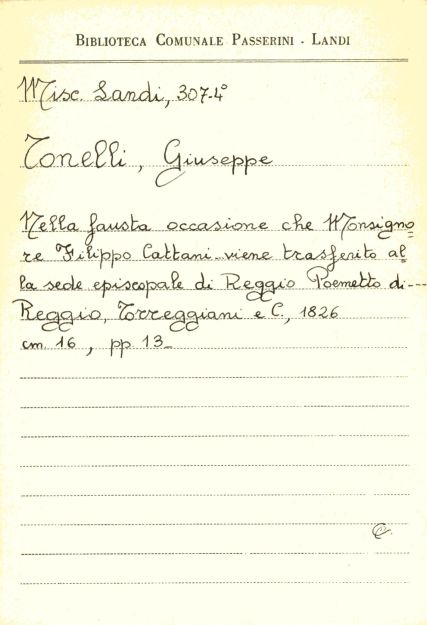 BIBLIOTECA COMUNALE PASSERINI - LANDI
Misc. Landi, 307-4°
Tonelli, Giuseppe
Nella fausta occasione che Monsigno=
re Filippo Cattani viene trasferito al=
la sede episcopale di Reggio Poemetto di---
Reggio, Torreggiani e C., 1826
cm. 16, pp. 13_